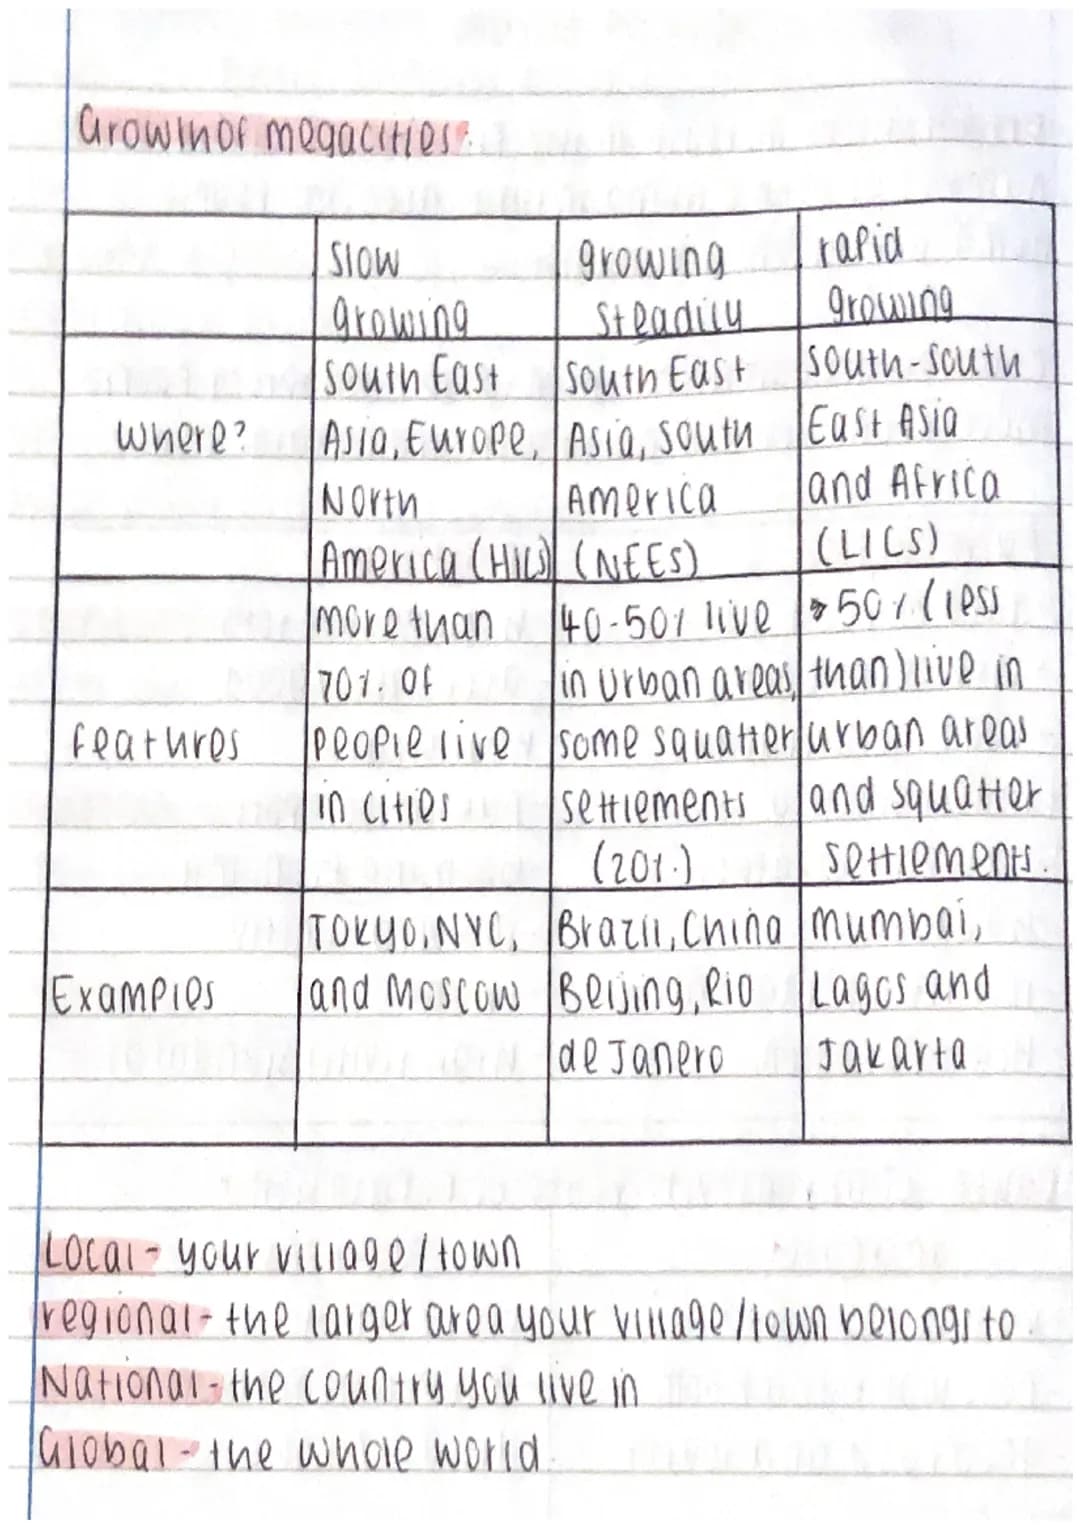 Growth of megacities:
slow growing
growing steadily
rapid growing
where?
South East Asia, Europe, North America (HICs)
South East Asia, South America (NEEs)
South-South East Asia and Africa (LICs)
features
more than 70% of people live in cities
40-50% live in urban areas, some squatter settlements (20%)
50% (less than) live in urban areas and squatter settlements.
Examples
TOKYO, NYC, and Moscow
Brazil, China Beijing, Rio de Janero
Mumbai, Lagos and Jakarta
Local - your village/town
regional - the larger area your village/town belongs to.
National - the country you live in
Global - the whole world.